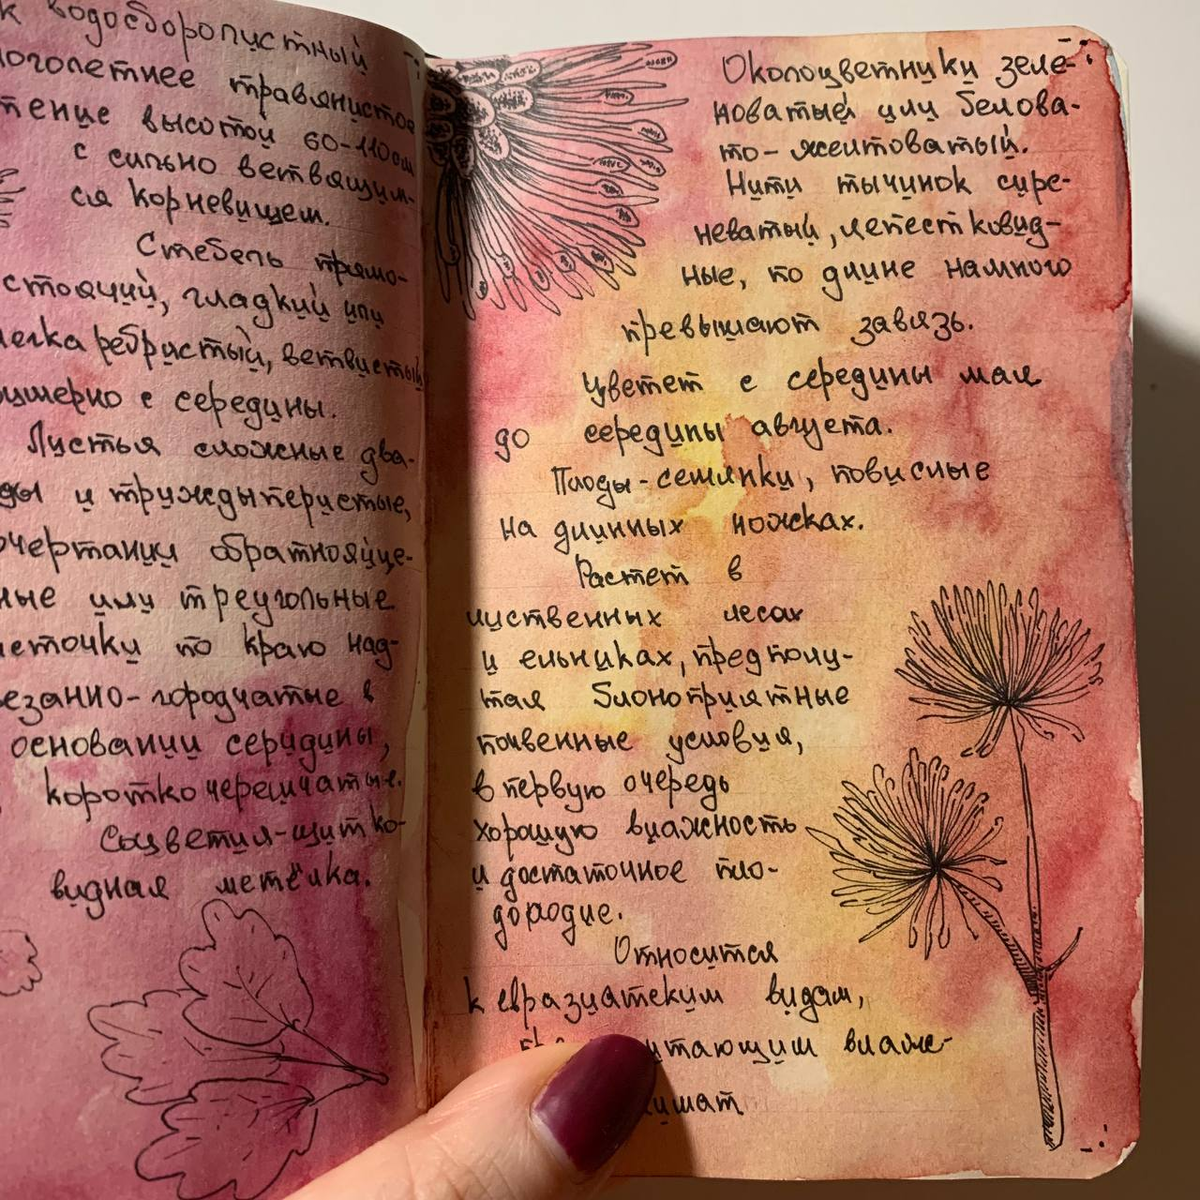 к водосборолистный
ноголетнее травянистое
тение высотой 60-110см
с сильно ветвящим-
ся корневищем.
Стебель прямо-
стоячий, гладкий или
мелкоребристый, ветвистый
римерно с середины.
Листья сложные два-
ды и триждыперистые,
очертании обратнояйце-
ные или треугольные
листочки по краю над-
резанно-городчатые в
основании середины,
короткочерешчатые.
Соцветия-щитко-
видная метёлка.
Околоцветники зеле-
новатый или белова-
то-желтоватый.
Нити тычинок сире-
неватый, лепестковид-
ные, по длине намного
превышают завязь.
Цветет с середины мая
до середины августа.
Плоды-семянки, повислые
на длинных ножках.
Растет в
лиственных лесах
и ельниках, предпочи-
тая благоприятные
почвенные условия,
в первую очередь
хорошую влажность
и достаточное пло-
дородие.
Относится
к евразиатским видам,
итающим влаж-
лимат